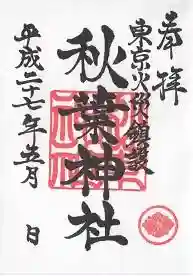 奉拝
東京火災鎮護
秋葉神社
平成二十七年五月 日